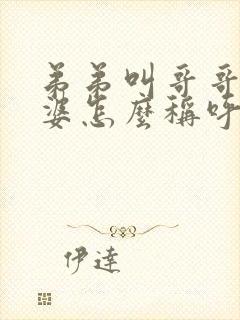 弟弟叫哥哥
婆怎麼稱呼
伊達